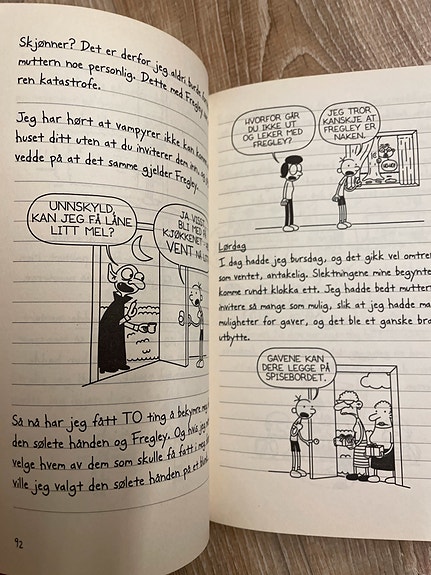 Skjønner? Det er derfor jeg aldri burde
muttern noe personlig. Dette med Fregley
ren katastrofe.
Jeg har hørt at vampyrer ikke kan
huset ditt uten at du inviterer dem inn,
vedde på at det samme gjelder Fregley.
UNNSKYLD,
KAN JEG FÅ LÅNE
LITT MEL?
JA VISST
BLI MED
KJØKKENET
VENT NÅ
Så nå har jeg fått TO ting å bekymre meg
den sølete hånden og Fregley. Og hvis jeg
velge hvem av dem som skulle få fatt i meg,
ville jeg valgt den sølete hånden på et
92
HVORFOR GÅR
DU IKKE UT
OG LEKER MED
FREGLEY?
JEG TROR
KANSKJE AT
FREGLEY ER
NAKEN.
Lørdag
I dag hadde jeg bursdag, og det gikk vel
som ventet, antakelig. Slektningene mine begynte
komme rundt klokka ett. Jeg hadde bedt
invitere så mange som mulig, slik at jeg hadde
muligheter for gaver, og det ble et ganske
utbytte.
GAVENE KAN
DERE LEGGE PÅ
SPISEBORDET.